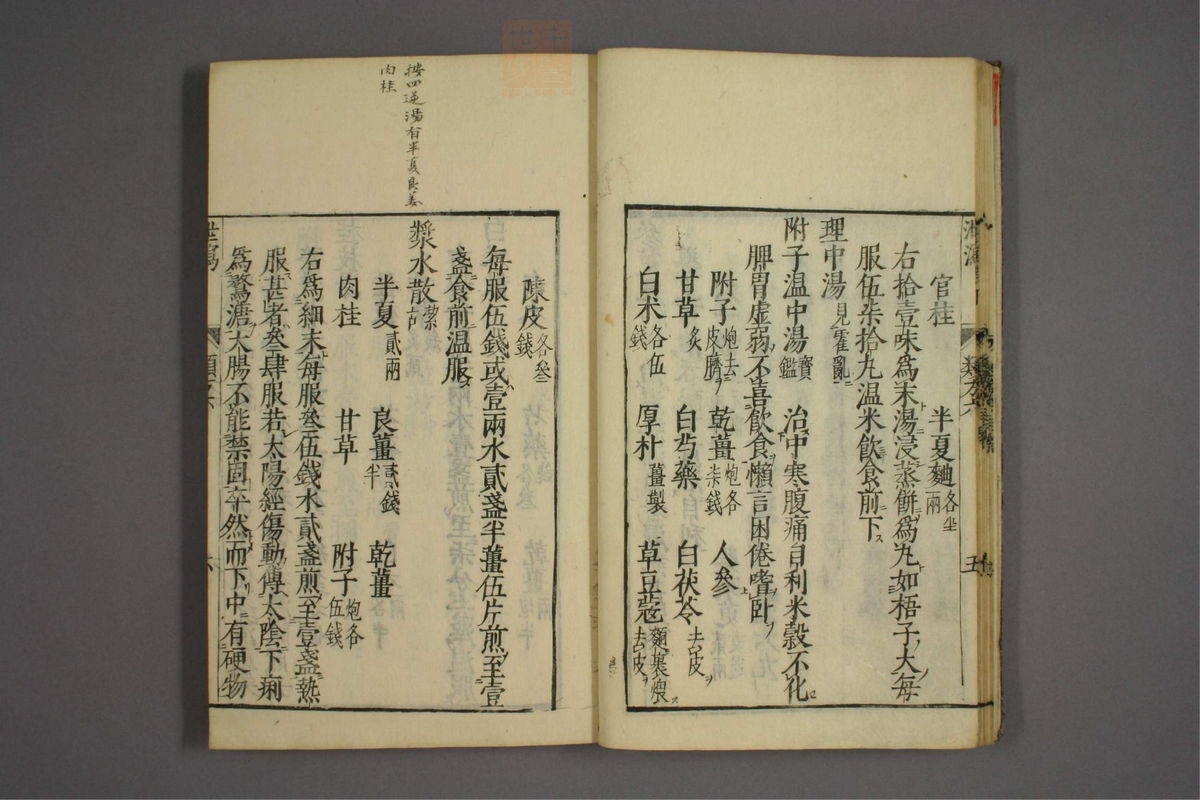 官桂 半夏麯各坐兩
右拾壹味爲末湯浸蒸餅爲丸如梧子大每
服伍柒拾丸温米飲食前下
理中湯見霍亂
附子温中湯寶鑑 治中寒腹痛自利米穀不化
脾胃虛弱不喜飲食懶言困倦嗜卧
附子炮去皮臍 乾薑炮各柒錢 人參
甘草炙 白芍藥 白茯苓去皮
白术各伍錢 厚朴薑製 草豆蔻麵裹煨去皮
五
陳皮各叁錢
每服伍錢或壹兩水貳盞半薑伍片煎至壹
盞食前温服
漿水散潔古
半夏貳兩 良薑貳錢半 乾薑
肉桂 甘草 附子炮各伍錢
右爲細末每服叁伍錢水貳盞煎至壹盞熱
服甚者叁肆服若太陽經傷動傳太陰下痢
爲鶩溏大腸不能禁固卒然而下中有硬物
按四逆湯有半夏良姜
肉桂
泄瀉